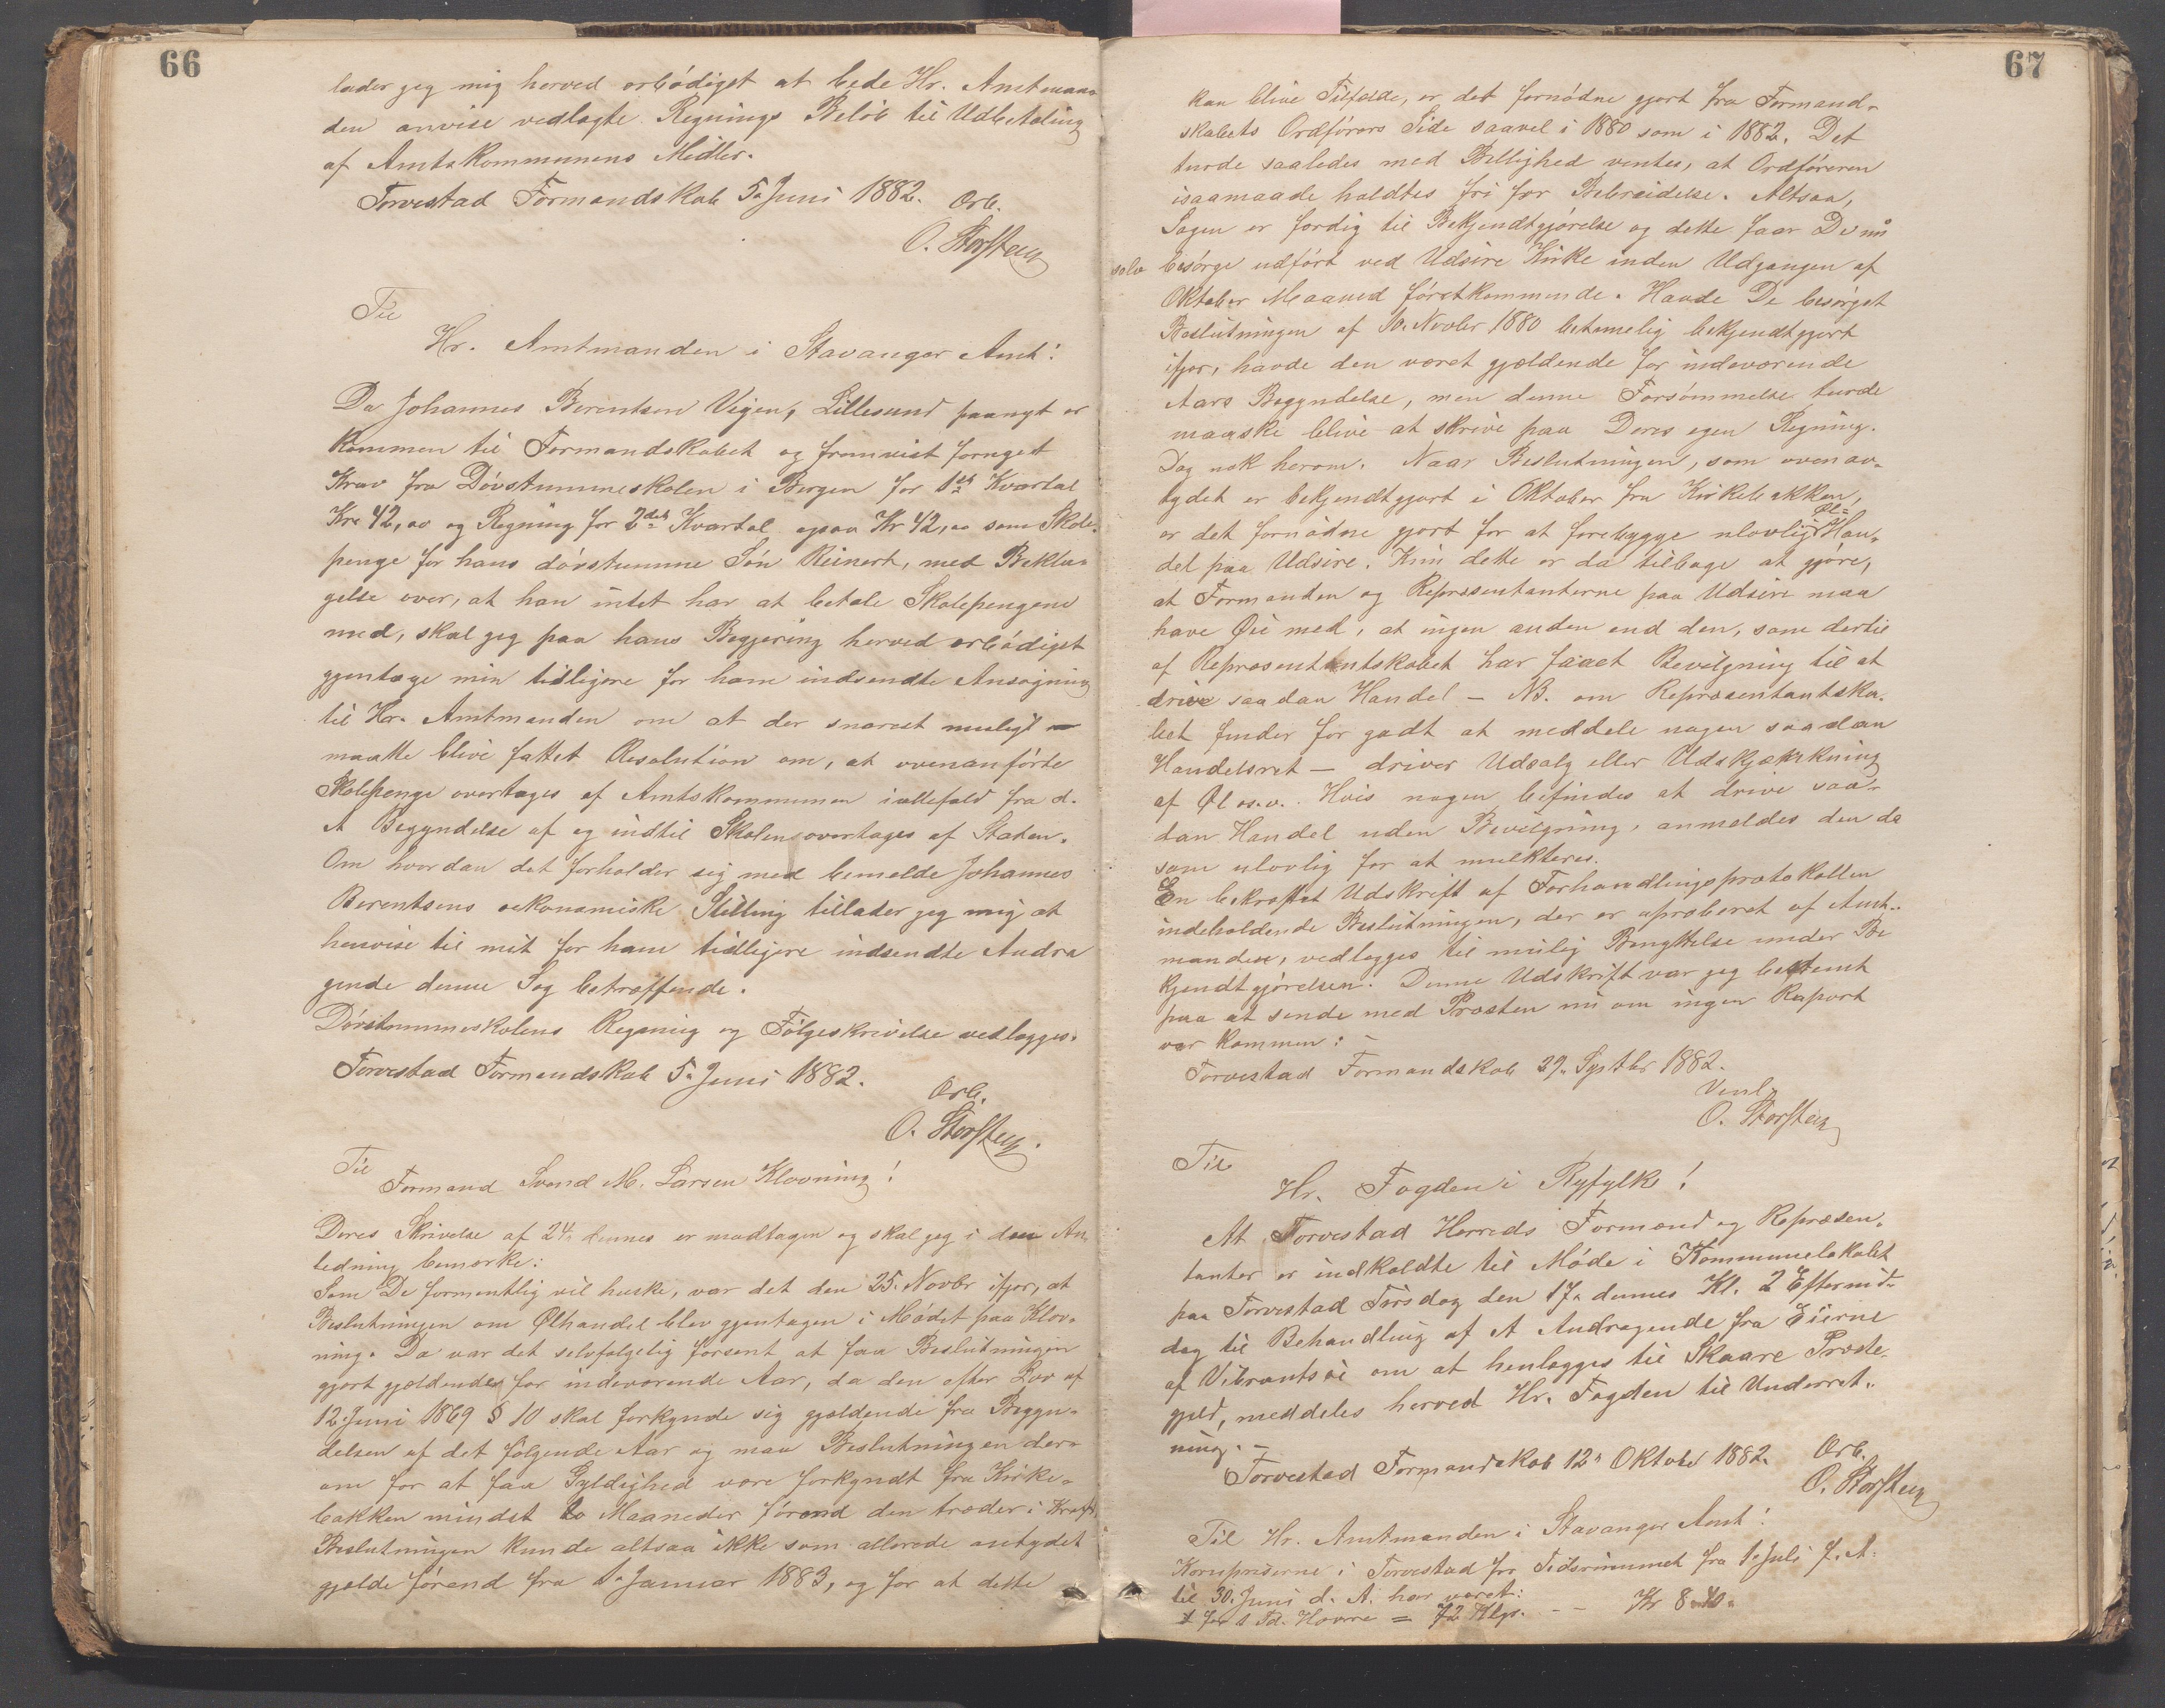 66
lader jeg mig herved erbödigst at bede Hr. Amtman-
den anvise vedlagte Regnings Belöb til Udbetaling
af Amtskommunens Midler.
Torvestad Formandskab 5. Juni 1882. Erb.
O. Storsteen
Til
Hr. Amtmanden i Stavanger Amt!
Da Johannes Berentsen Vigen, Lillesund paanyt er
kommen til Formandskabet og fremvist fornyet
Krav fra Dövstummeskolen i Bergen for 1ste Kvartal
Kr. 42,00 og Regning for 2det Kvartal ogsaa Kr 42,00 som Skole-
penge for hans dövstumme Sön Reinert, med Bekla-
gelse over, at han intet har at betale Skolepengene
med, skal jeg paa hans Begjæring herved erbödigst
gjentage min tidligere for ham indsendte Ansøgning
til Hr. Amtmanden om at der snarest muligt
maatte blive fattet Resolution om, at ovenanförte
Skolepenge overtages af Amtskommunen iallefald fra d.
A Begyndelse af og indtil Skolen overtages af Staten.
Om hvordan det forholder sig med bemeldte Johannes
Berentsens oekonomiske Stilling tillader jeg mig at
henvise til mit for ham tidligere indsendte Andra
gende denne Sag betræffende.
Dövstummeskolens Regning og Fölgeskrivelse vedlægges.
Torvestad Formandskab 5. Juni 1882.
Erb.
O. Storsteen.
Til
Formand Svend M. Larsen Klovning!
Deres Skrivelse af 24. dennes er modtagen og skal jeg i den An
ledning bemærke:
Som De formentlig vil huske, var det den 25. Novbr ifjor, at
Beslutningen om Ølhandel blev gjentagen i Mödet paa Klov-
ning. Da var det selvfølgelig forsent at faa Beslutningen
gjort gjældende for indeværende Aar, da den efter Lov af
12. Juni 1869 § 10 skal forkynde sig gjældende fra Begyn-
delsen af det fölgende Aar og maa Beslutningen der-
om for at faa Gyldighed være forkyndt fra Kirke-
bakken mindst to Maaneder förend den træder i Kraft.
Beslutningen kunde altsaa ikke som allerede antydet
gjælde förend fra 1. Januar 1883, og for at dette
67
kan blive Tilfælde, er det fornödne gjort fra Formand-
skabets Ordförers Side saavel i 1880 som i 1882. Det
turde saaledes med Billighed ventes, at Ordföreren
isaamaade holdtes fri for Bebreidelse. Altsaa,
Sagen er færdig til Bekjendtgjörelse og dette faar De nu
selv besörge udfört ved Udsire Kirke inden Udgangen af
Oktober Maaned förstkommende. Havde De besörget
Beslutningen af 10. Novbr 1880 betimelig bekjendtgjort
ifjor, havde den været gjældende for indeværende
Aars Begyndelse, men denne Forsömmelse turde
maaske blive at skrive paa Deres egen Regning.
Dog nok herom. Naar Beslutningen, som ovenan-
tydet er bekjendtgjort i Oktober fra Kirkebakken,
er det fornödne gjort for at forebygge ulovlig Øl= Han-
del paa Udsire. Kun dette er da tilbage at gjöre,
at Formanden og Repræsentanterne paa Udsire maa
have Øie med, at ingen anden end den, som dertil
af Repræsentantskabet har faaet Bevilgning til at
drive saadan Handel – NB. om Repræsentantska-
bet finder for godt at meddele nogen saadan
Handelsret – driver Udsalg eller Udskjænkning
af Øl os.v. Hvis nogen befindes at drive saa-
dan Handel uden Bevilgning, anmeldes den da
som ulovlig for at mulkteres.
En bekræftet Udskrift af Forhandlingsprotokollen
indeholdende Beslutningen, der er aproberet af Amt-
manden, vedlægges til mulig Benyttelse under Be
kjendtgjörelsen. Denne Udskrift var jeg bestemt
paa at sende med Præsten nu om ingen Raport
var kommen: –
Torvestad Formandskab 29. Septbr 1882.
Venl.
O. Storsteen
Til
Hr. Fogden i Ryfylke!
At Torvestad Herreds Formænd og Repræsen-
tanter er indkaldte til Möde i Kommunelokalet
paa Torvestad Tirsdag den 17. dennes Kl. 2 Eftermid-
dag til Behandling af A Andragende fra Eierne
af Vibrantsöi om at henlægges til Skaare Præste-
gjeld, meddeles herved Hr. Fogden til Underret-
ning. –
Torvestad Formandskab 12. Oktober 1882. Erb.
O. Storsteen
Til Hr. Amtmanden i Stavanger Amt!
Kornpriserne i Torvestad for Tidsrummet fra 1. Juli f. A.
til 30. Juni d. A. har været:
1 for 1 Td. Havre = 72 Klgr. - - Kr 8.40.